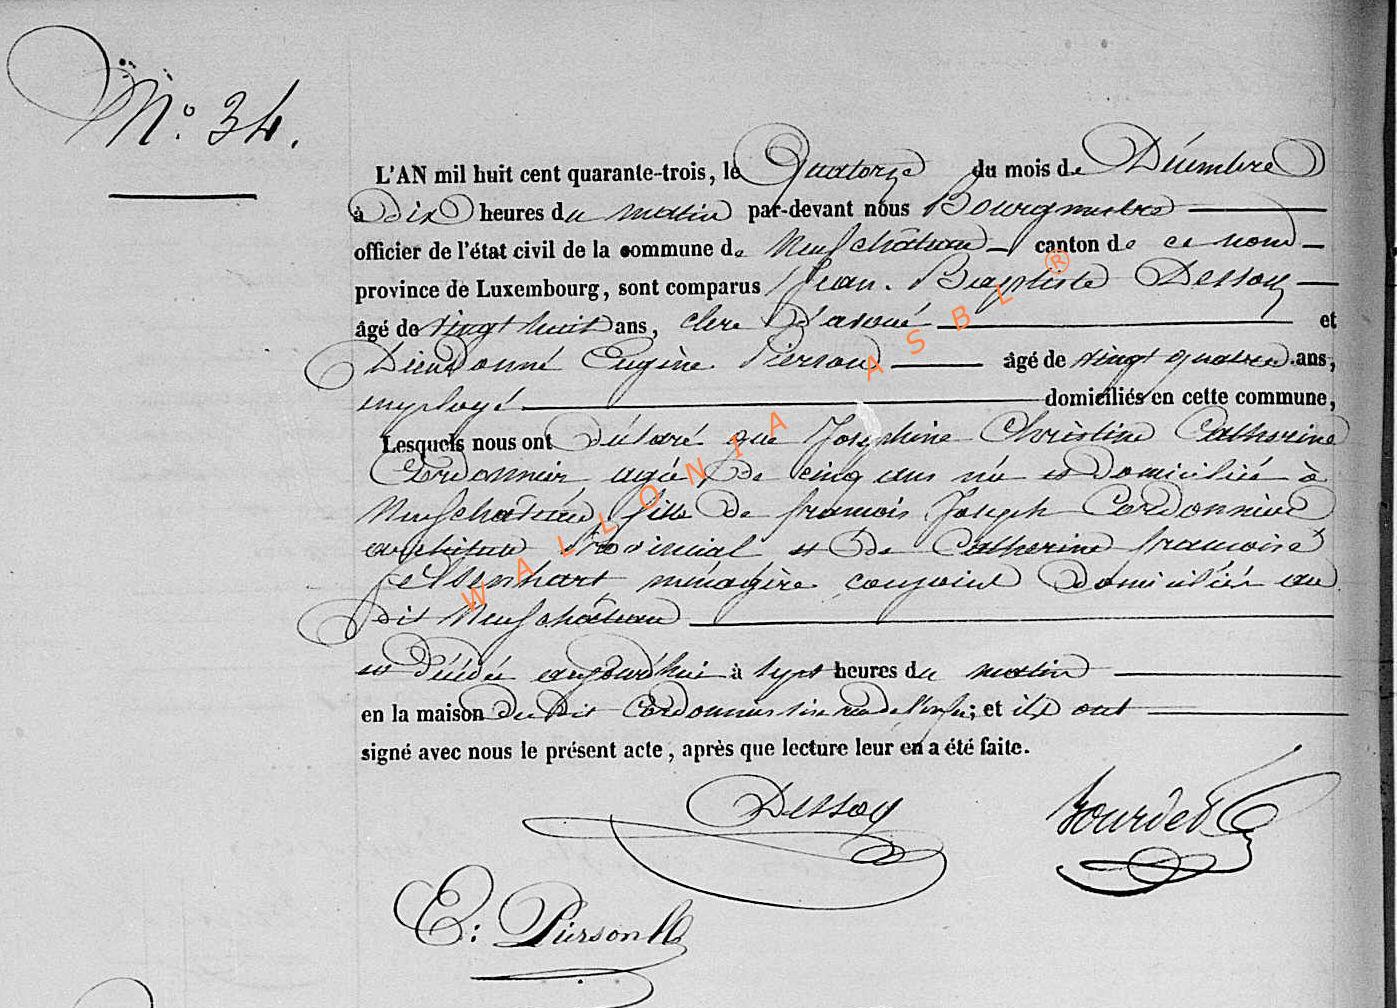 N.º 34.
L'AN mil huit cent quarante-trois, le Quatorze du mois de Décembre
à dix heures du matin par-devant nous Bourgmestre
officier de l'état civil de la commune de Neufchâteau canton de ce nom
province de Luxembourg, sont comparus Jean-Baptiste Dessoy
âgé de vingt huit ans, clerc d'avoué et
Dieudonné Eugène Pierson âgé de vingt quatre ans,
employé domiciliés en cette commune,
Lesquels nous ont déclaré que Joséphine Christine Catherine
Cordonnier agée de cinq ans née et domiciliée à
Neufchâteau, fille de françois Joseph Cordonnier
architecte Provincial et de Catherine françoise
fellenhart ménagère conjoint domiciliés au
dit Neufchâteau
est décédée aujourd'hui à sept heures du matin
en la maison du dit Cordonnier sise rue ; et ils ont
signé avec nous le présent acte, après que lecture leur en a été faite.
Dessoy
Bourdet
E: Pierson
WALLONIA ASBL ®